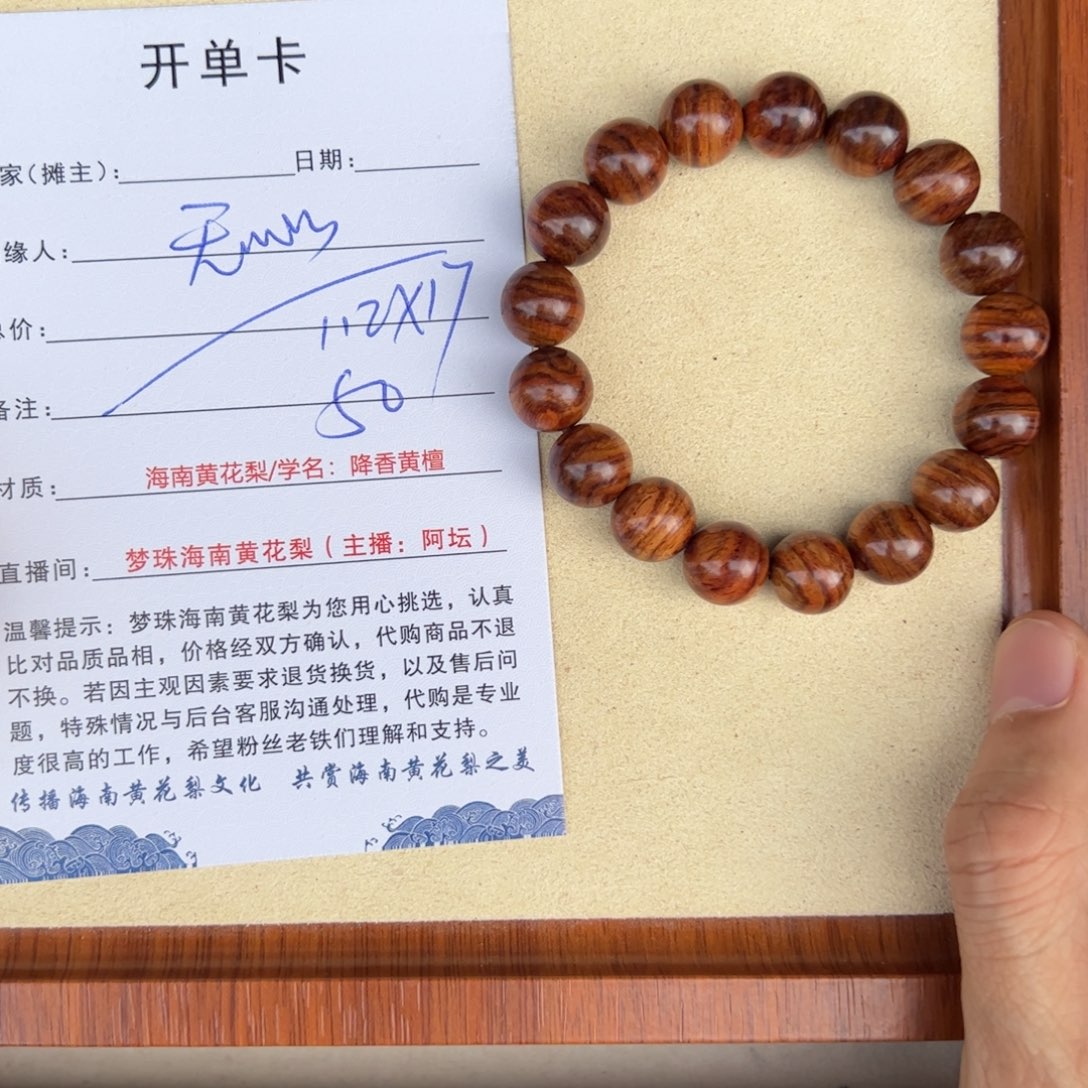 开单卡
家(摊主): 日期:
缘人:
价: 112X17
备注: 50
材质: 海南黄花梨/学名:降香黄檀
直播间: 梦珠海南黄花梨(主播:阿坛)
温馨提示:梦珠海南黄花梨为您用心挑选,认真
比对品质品相,价格经双方确认,代购商品不退
不换。若因主观因素要求退货换货,以及售后问
题,特殊情况与后台客服沟通处理,代购是专业
度很高的工作,希望粉丝老铁们理解和支持。
传播海南黄花梨文化 共赏海南黄花梨之美